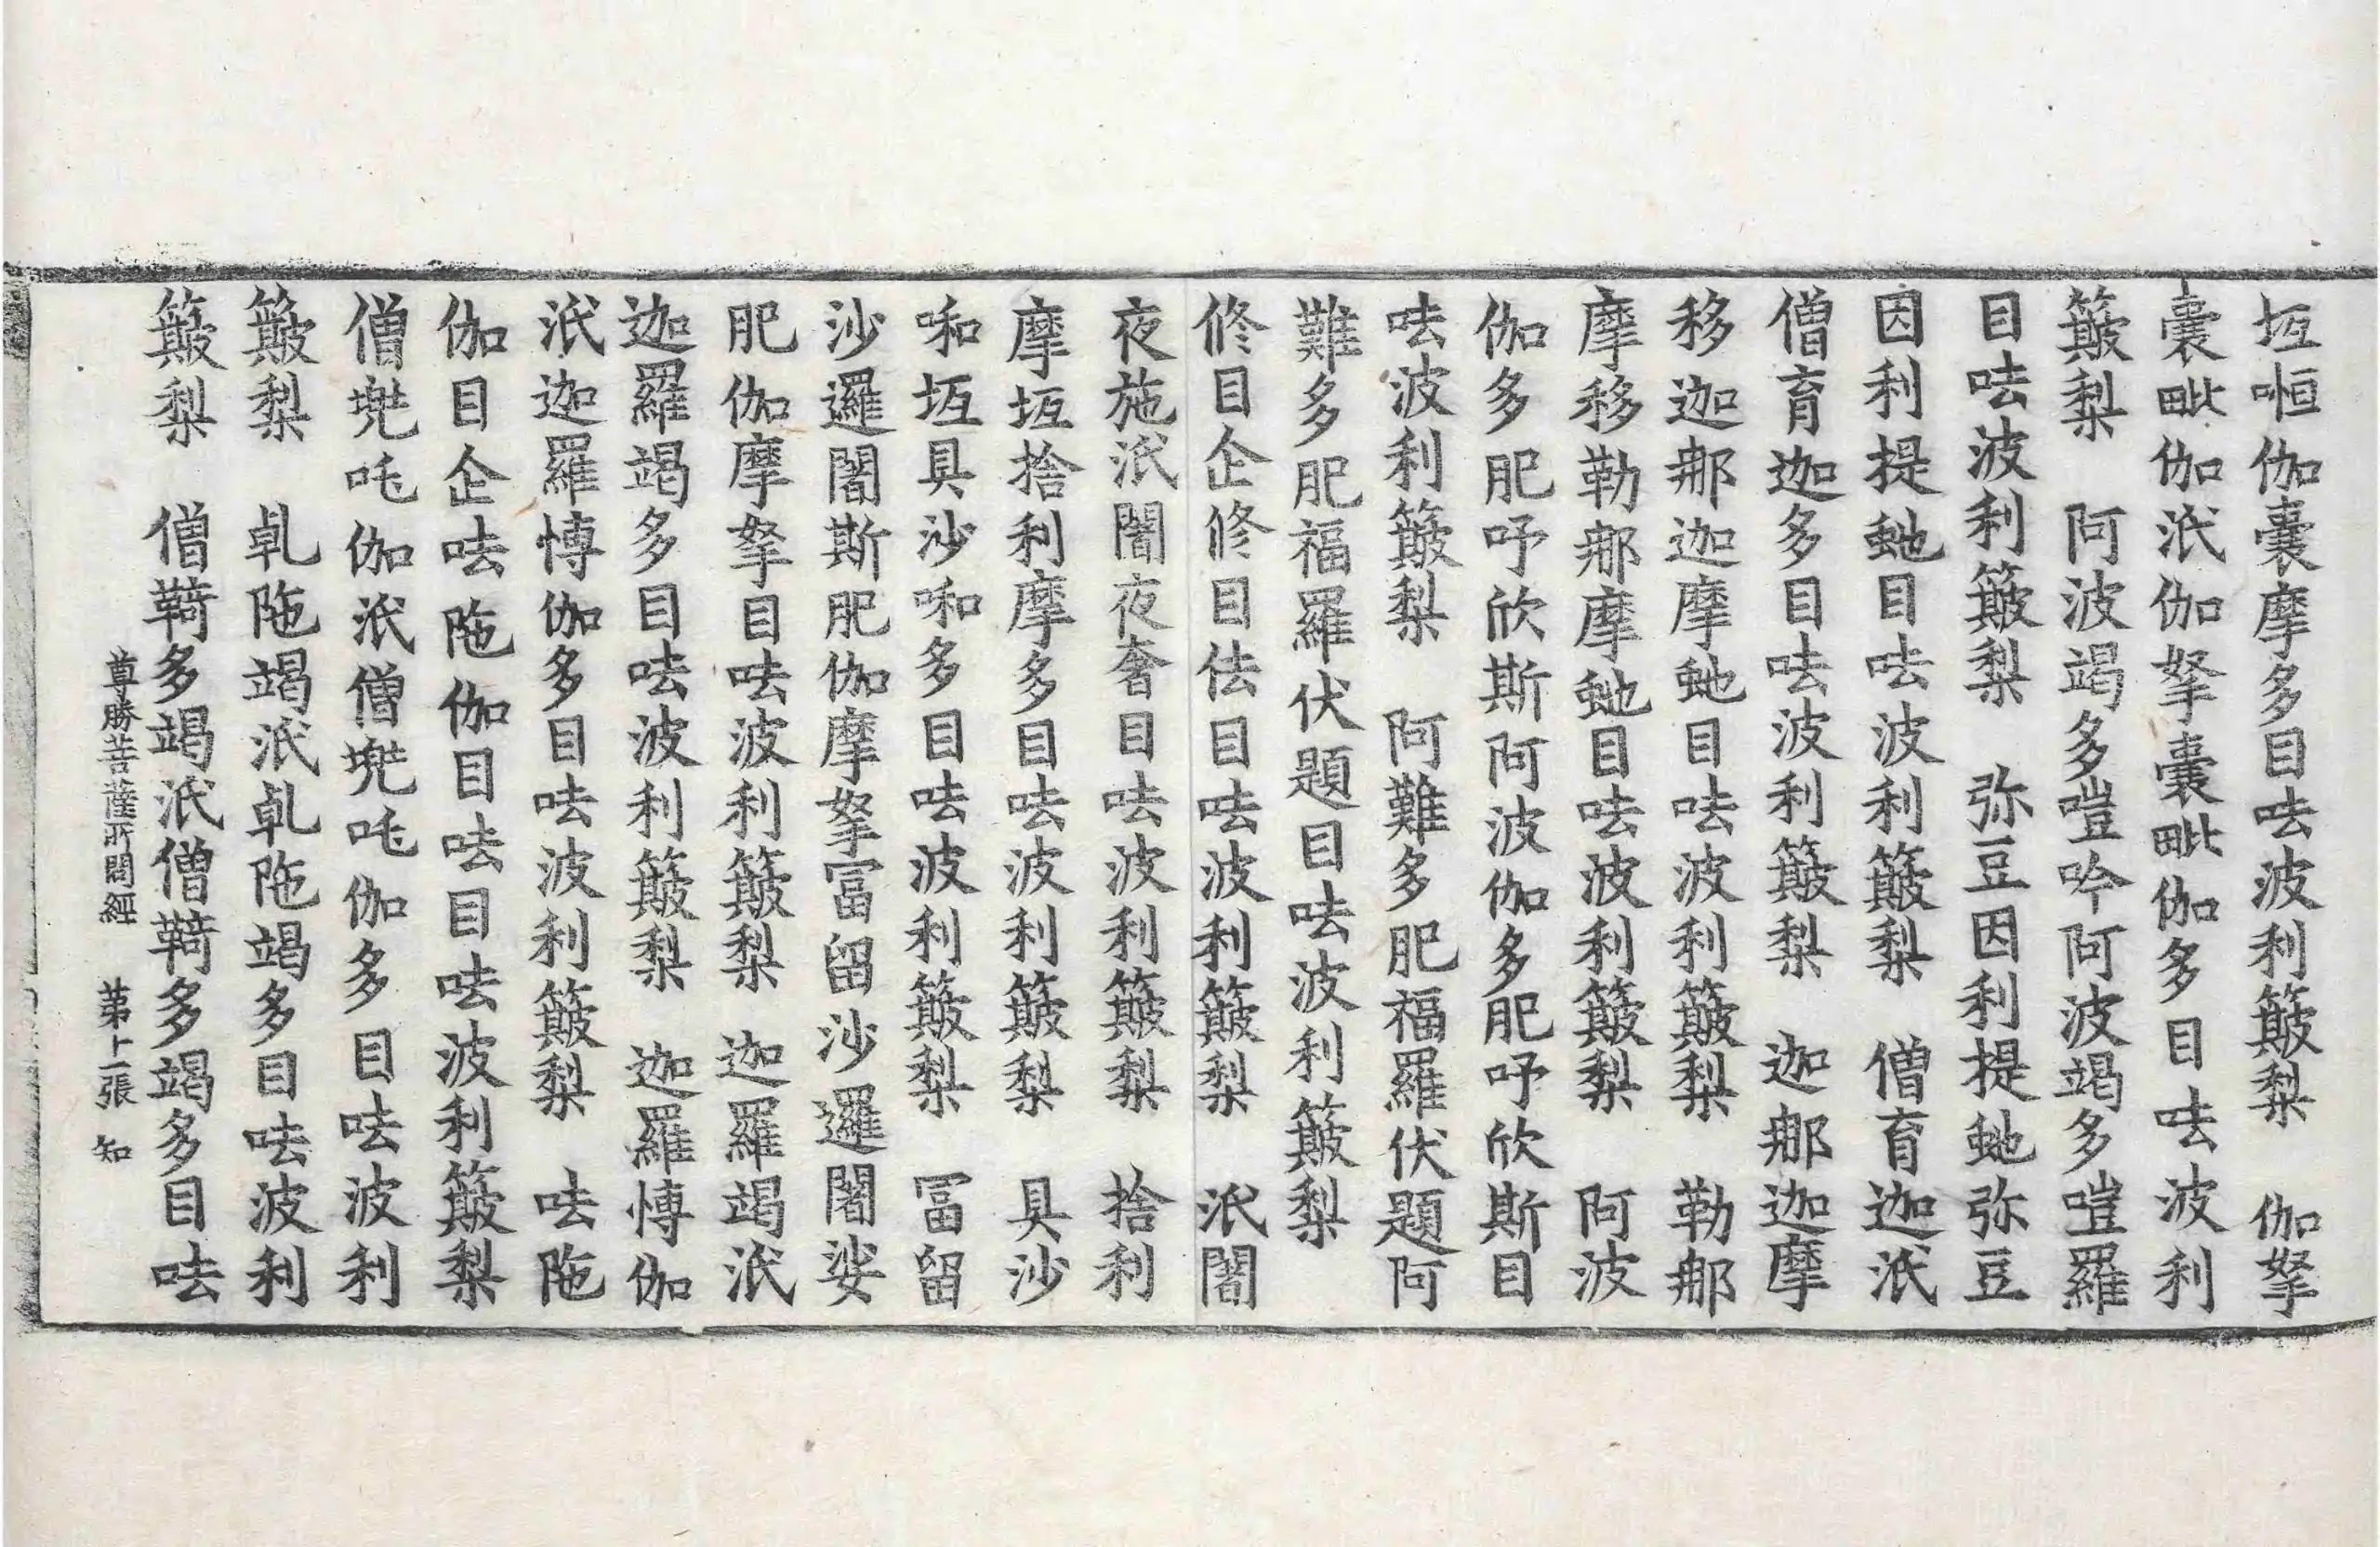 坘㖷伽囊摩多目呿波利簸梨　伽拏
囊毗伽泜伽拏囊毗伽多目呿波利
簸梨　阿波竭多嘊吟阿波竭多嘊羅
目呿波利簸梨　弥豆因利提虵弥豆
因利提虵目呿波利簸梨　僧育迦泜
僧育迦多目呿波利簸梨　迦那迦摩
移迦那迦摩虵目呿波利簸梨　勒那
摩移勒那摩虵目呿波利簸梨　阿波
伽多肥吁欣斯阿波伽多肥吁欣斯目
呿波利簸梨　阿難多肥福羅伏題阿
難多肥福羅伏題目呿波利簸梨
修目企修目佉目呿波利簸梨　泜闍
夜施泜闍夜奢目呿波利簸梨　捨利
摩坘捨利摩多目呿波利簸梨　具沙
啝坘具沙啝多目呿波利簸梨　冨留
沙邏闍斯肥伽摩拏冨留沙邏闍娑
肥伽摩拏目呿波利簸梨　迦羅竭泜
迦羅竭多目呿波利簸梨　迦羅慱伽
泜迦羅慱伽多目呿波利簸梨　呿陁
伽目企呿陁伽目呿目呿波利簸梨
僧兠吒伽泜僧兠吒伽多目呿波利
簸梨　乹陁竭泜乹陁竭多目呿波利
簸梨　僧鞛多竭泜僧鞛多竭多目呿
尊勝菩薩所問經　苐上二張　知